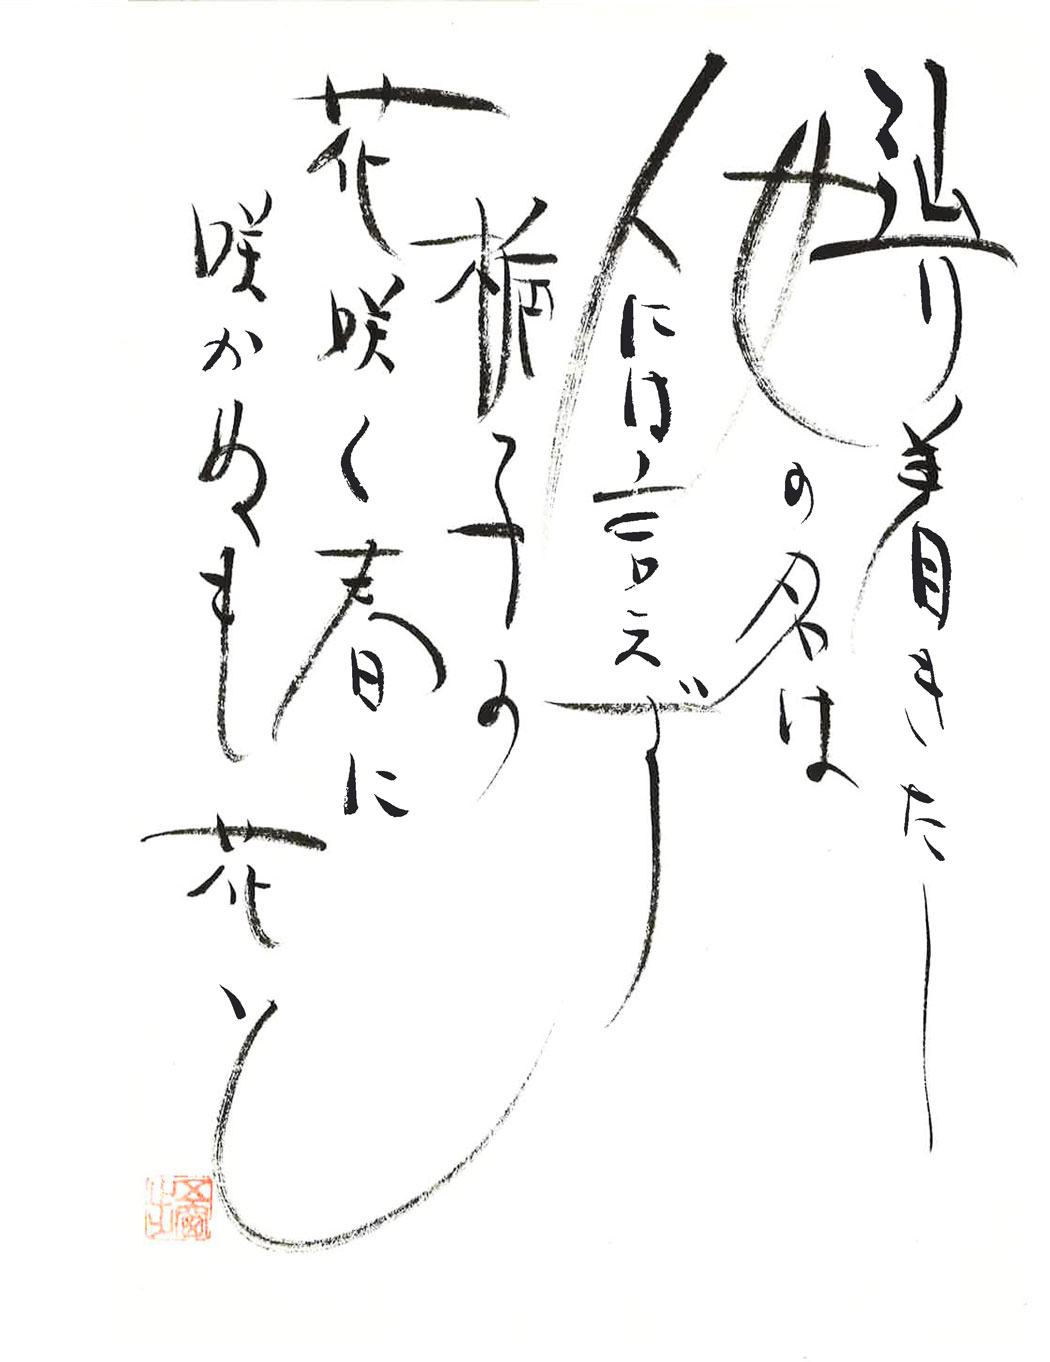 辿り着きたし
女の名は
人には言えず
梔子の
花咲く春に
咲かぬも花と